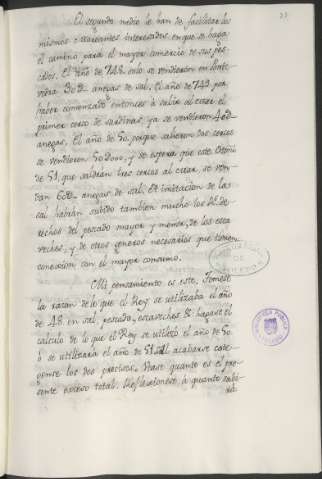 El segundo medio le han de facilitar los
mismos interesados en que se haga
el cambio para el mayor comercio de sus pes-
cados. El año de 748 solo se vendieron en Ponte-
vedra 30 anegas de sal. El año de 749 por
haber comenzado entonces à salir al crear el
primer cerco de sardinas, ya se vendieron
anegas. El año de 50, porque salieron dos cercos
se vendieron 50 y se espera que este Otoño
de 51, que saldràn tres cercos al crear, se ven-
dan anegas de sal. A imitacion de la
sal habràn subido tambien mucho los de
rechos del pescado mayor y menor, de los esca
veches, y de otros generos necesarios que tienen
connexion con el mayor consumo.
Mi pensamiento es este. Tomese
la razon de lo que el Rey se utilizaba el año
de 48 en sal, pescado, escaveches & hagase el
calculo de lo que el Rey se utilizò el año de 50
ò se utilizarà el año de 51 al acabarse
los dos Vease quanto es el pre-
sente exceso total. Reflexionese, à quanto subi-